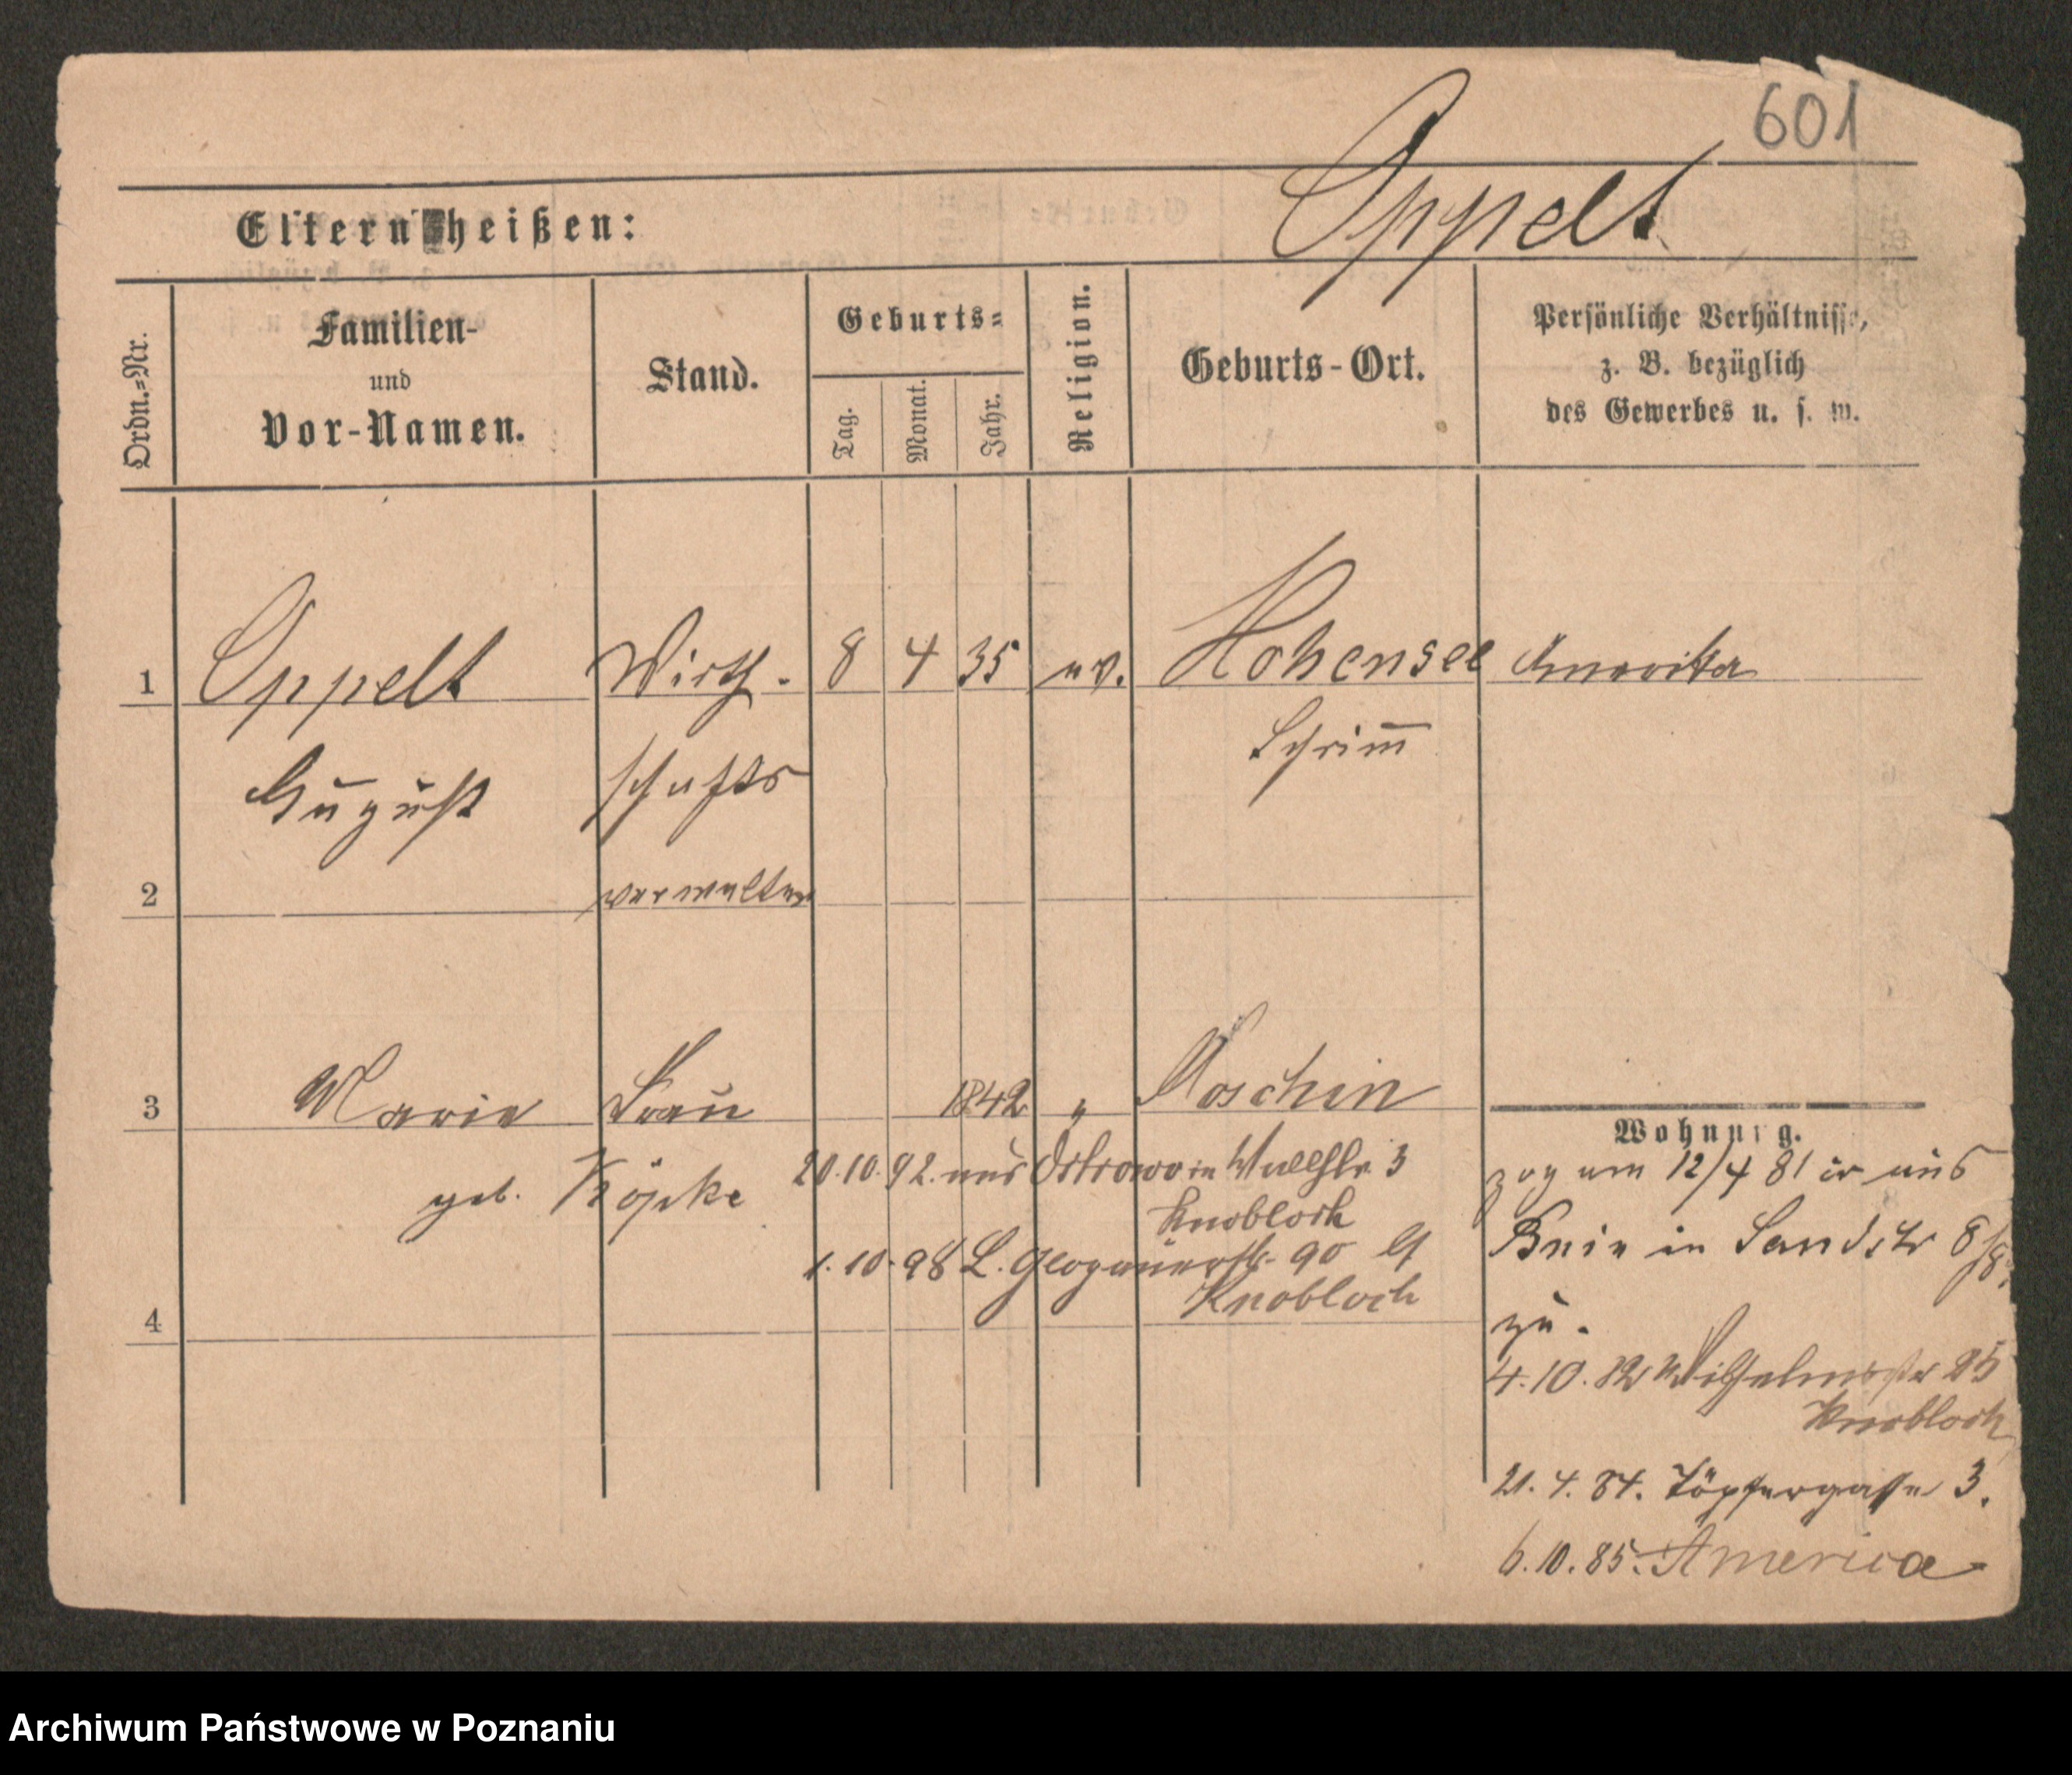 601
Oppelt
Eltern heißen:
Ordn.=Nr.
Familien-
und
Vor-Namen.
Stand.
Geburts=
Tag.
Monat.
Jahr.
Religion.
Geburts-Ort.
Persönliche Verhältnisse,
z. B. bezüglich
des Gewerbes u. s. w.
1 Oppelt Wirth- 8 4 35 ev. Hohensee Amerika
Schrimm
August schafts
2 verwalter
3 Marie Frau 1842 " Moschin
geb. Köpke
20.10.92. aus Ostrowo in Wallstr. 3
Knobloch
1.10.98 L. Glogauerstr. 90
Knobloch
4
Wohnung.
zog am 12/4 81 aus
Bnin in Sandstr 8
zu.
4.10.82 Wilhelmstr 25
Knobloch
21.4.84. Töpfergasse 3.
6.10.85. America
Archiwum Państwowe w Poznaniu